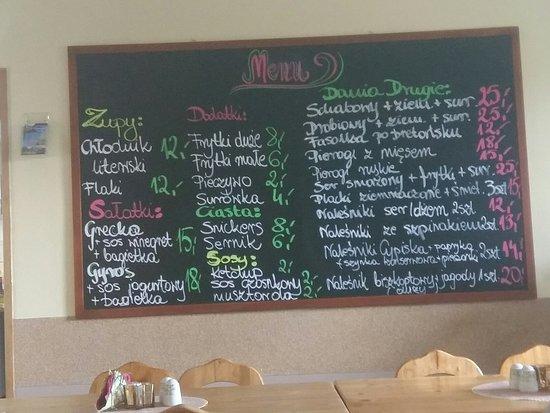 Menu
Zupy:
Chłodnik 12,-
litewski
Flaki 12,-
Sałatki:
Grecka
+ sos winegret 15,-
+ bagietka
Gyros
+ sos jogurtowy 18,-
+ bagietka
Dodatki:
Frytki duże 8,-
Frytki małe 6,-
Pieczywo 2,-
Surówka 4,-
Ciasta:
Snickers 8,-
Sernik 6,-
Sosy:
ketchup 2,-
sos czosnkowy 2,-
musztarda 2,-
Dania Drugie:
Schabowy + ziem + sur. 25,-
Drobiowy + ziem. + sur. 25,-
Fasolka po bretońsku 12,-
Pierogi z mięsem 18,-
Pierogi ruskie 15,-
Ser smażony + frytki + sur. 25,-
Placki ziemniaczane + śmiet. 3szt 15,-
Naleśniki ser/dżem 2szt 12,-
Naleśniki ze szpinakiem 2szt 13,-
Naleśniki Cypiska - papryka
+ szynka konserwowa + pieczarki 2szt 14,-
Naleśnik brzekoptowy jagody 1szt 20,-